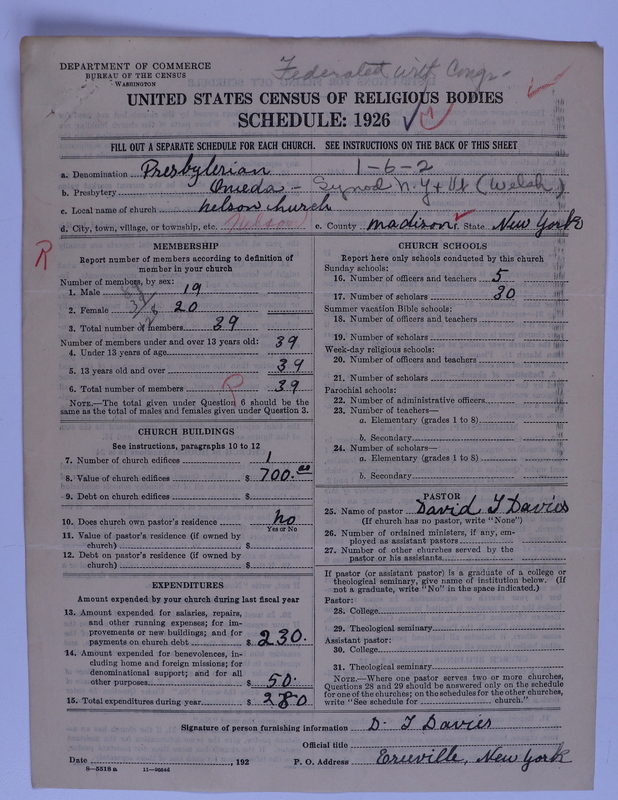 DEPARTMENT OF COMMERCE
BUREAU OF THE CENSUS
WASHINGTON
Federated with Cong.
UNITED STATES CENSUS OF RELIGIOUS BODIES
SCHEDULE: 1926
FILL OUT A SEPARATE SCHEDULE FOR EACH CHURCH. SEE INSTRUCTIONS ON THE BACK OF THIS SHEET
a. Denomination Presbyterian 1-6-2
b. Presbytery Oneida - Synod N.Y + Vt (Welsh)
c. Local name of church nelson church
d. City, town, village, or township, etc. Nelson e. County madison f. State New York
R
MEMBERSHIP
Report number of members according to definition of
member in your church
Number of members, by sex:
1. Male 19
2. Female 20
3. Total number of members 39
Number of members under and over 13 years old: 39
4. Under 13 years of age
5. 13 years old and over 39
6. Total number of members 39
NOTE.—The total given under Question 6 should be the
same as the total of males and females given under Question 3.
CHURCH BUILDINGS
See instructions, paragraphs 10 to 12
7. Number of church edifices 1
8. Value of church edifices $ 700.00
9. Debt on church edifices $
10. Does church own pastor's residence no
Yes or No
11. Value of pastor's residence (if owned by
church) $
12. Debt on pastor's residence (if owned by
church) $
EXPENDITURES
Amount expended by your church during last fiscal year
13. Amount expended for salaries, repairs,
and other running expenses; for im-
provements or new buildings; and for
payments on church debt $ 230.
14. Amount expended for benevolences, in-
cluding home and foreign missions; for
denominational support; and for all
other purposes $ 50.
15. Total expenditures during year $ 280
CHURCH SCHOOLS
Report here only schools conducted by this church
Sunday schools:
16. Number of officers and teachers 5
17. Number of scholars 30
Summer vacation Bible schools:
18. Number of officers and teachers
19. Number of scholars
Week-day religious schools:
20. Number of officers and teachers
21. Number of scholars
Parochial schools:
22. Number of administrative officers
23. Number of teachers—
a. Elementary (grades 1 to 8)
b. Secondary
24. Number of scholars—
a. Elementary (grades 1 to 8)
b. Secondary
PASTOR
25. Name of pastor David T Davies
(If church has no pastor, write "None")
26. Number of ordained ministers, if any, em-
ployed as assistant pastors
27. Number of other churches served by the
pastor or his assistants
If pastor (or assistant pastor) is a graduate of a college or
theological seminary, give name of institution below. (If
not a graduate, write "No" in the space indicated.)
Pastor:
28. College
29. Theological seminary
Assistant pastor:
30. College
31. Theological seminary
NOTE.—Where one pastor serves two or more churches,
Questions 28 and 29 should be answered only on the schedule
for one of the churches; on the schedules for the other churches,
write "See schedule for church."
Signature of person furnishing information D. T Davies
Official title
Date , 192 P. O. Address Erieville, New York
8—5518a 11—9054d